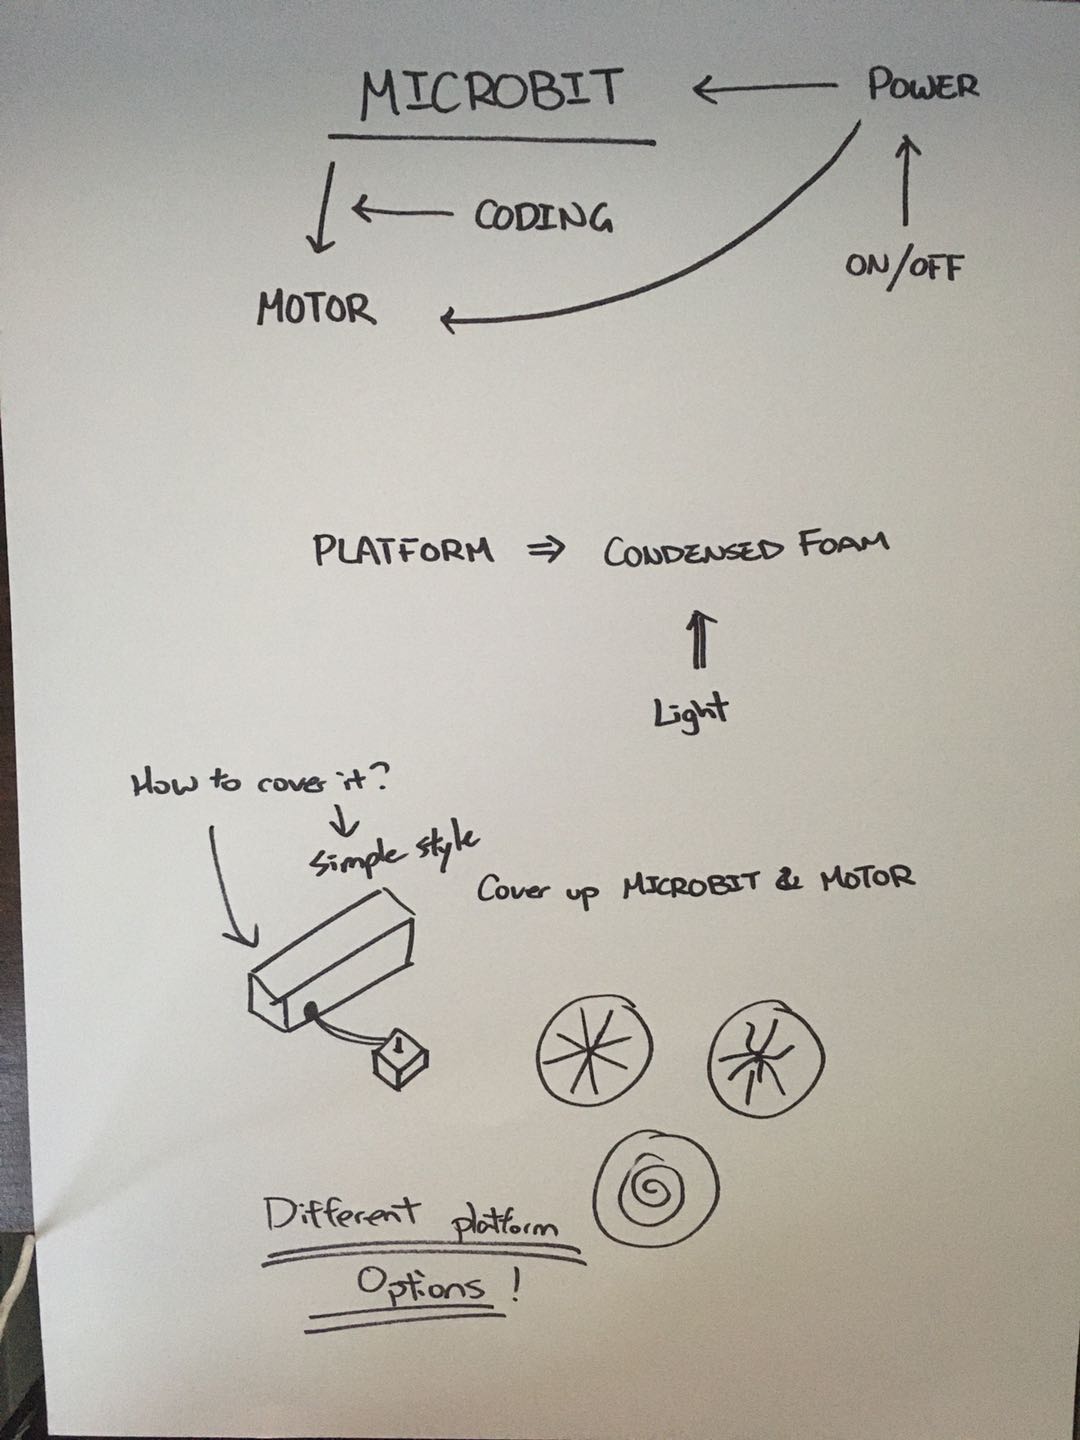 MICROBIT ← POWER
← CODING
ON/OFF
MOTOR
PLATFORM ⇒ CONDENSED FOAM
Light
How to cover it?
Simple style
Cover up MICROBIT & MOTOR
Different platform
Options !